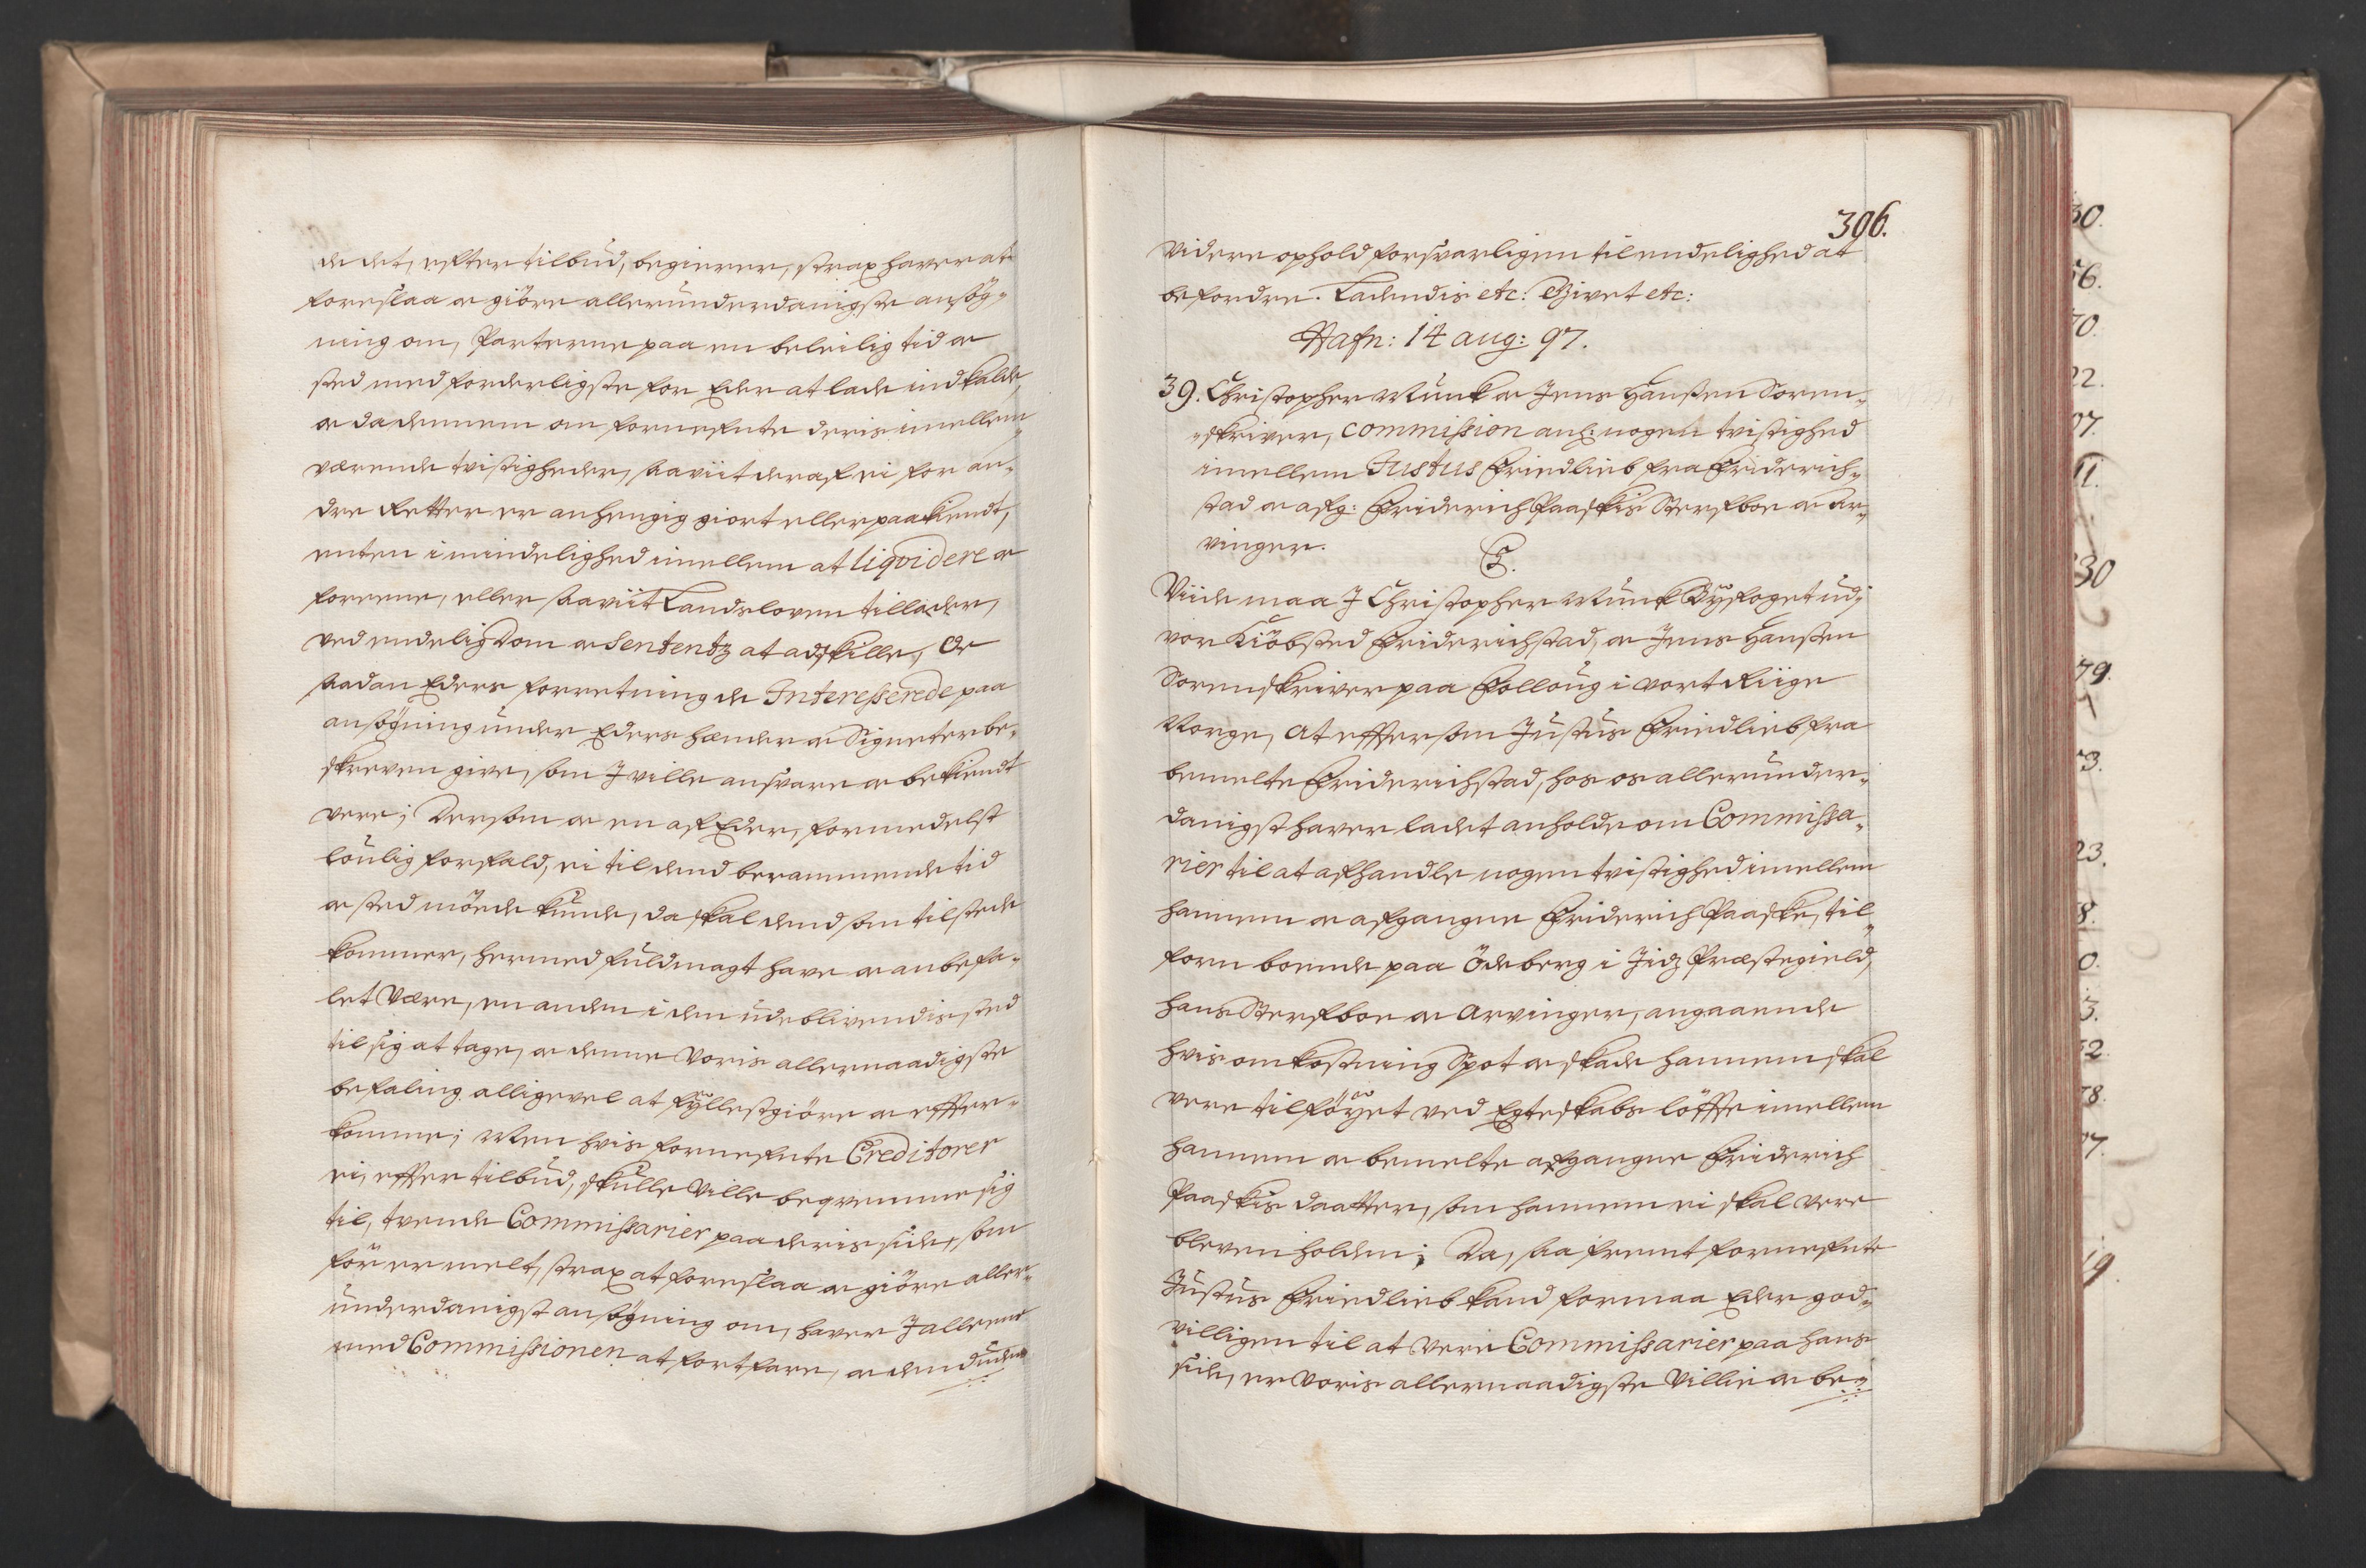 de det, efter tilbud, begierer, strax haver at
foreslaa oc giöre allerunderdanigste ansög„
ning om, Parterne paa en beleilig tid oc
sted med forderligste for Eder at lade indkalde,
oc da dennem om fornefnte deris imellem„
værende tvistigheder, saaviit deraf ei for an„
dre Retter er anhengig giort eller paakiendt,
enten i mindelighed imellem at liqvidere oc
foreene, eller saaviit Landsloven tillader,
ved endelig Dom oc Sententz at adskille, Oc
saadan Eders forretning de Interesserede paa
ansögning under Eders hænder oc Signeter be„
skreven give, som I ville ansvare oc bekiendt
vere; Dersom oc en af Eder, formedelst
loulig forfald, ei til dend berammende tid
oc sted möede kunde, da skal dend som tilstede
kommer, hermed fuldmagt have oc anbefa„
let være, en anden i den udeblivendis sted
til sig at tage, oc denne Voris allernaadigste
befaling alligevel at fyllestgiöre oc effter„
komme; Men hvis fornefnte Creditorer
ei, effter tilbud, skulle ville beqvemme sig
til, tvende Commissarier paa deris side, som
för er melt, strax at foreslaa oc giöre aller„
underdanigst ansögning om, haver I alleene
med Commissionen at fortfare, oc dend uden
396.
videre ophold forsvarligen til endelighed at
befordre. Ladendis etc: Givet etc:
Hafn: 14 aug: 97.
39. Christopher Munk oc Jens Hanssen Soren„
„skriver, Commission anl: nogen tvistighed
imellem Justus Friedlieb fra Friderich„
stad oc afg: Friderich Paaskis Sterfboe oc Ar„
vinger.
C5.
Viide maa I Christopher Munk Byfoget ud„
vor Kiöbsted Friderichstad, oc Jens Hanssen
Sorenskriver paa Folloug i vort Riige
Norge, at effter som Justus Friedlieb fra
bemelte Friderichstad, hos os allerunder„
danigst haver ladet anholde om Commissa„
rier til at afhandle nogen tvistighed imellem
hannem oc afgangne Friderich Paaske, til„
forn boende paa Ödeberg i Jidz Præstegield,
hans Sterfboe oc Arvinger, angaaende
hvis omkostning Spot oc skade hannem skal
vere tilföyet ved Egteskabs löffte imellem
hannem oc bemelte afgangne Friderich
Paaskis daatter, som hannem ei skal vere
bleven holden; Da, saa fremt fornefnte
Justus Friedlieb kand formaa Eder god„
villigen til at vere Commissarier paa hans
side, er Voris allernaadigste Villie oc be„